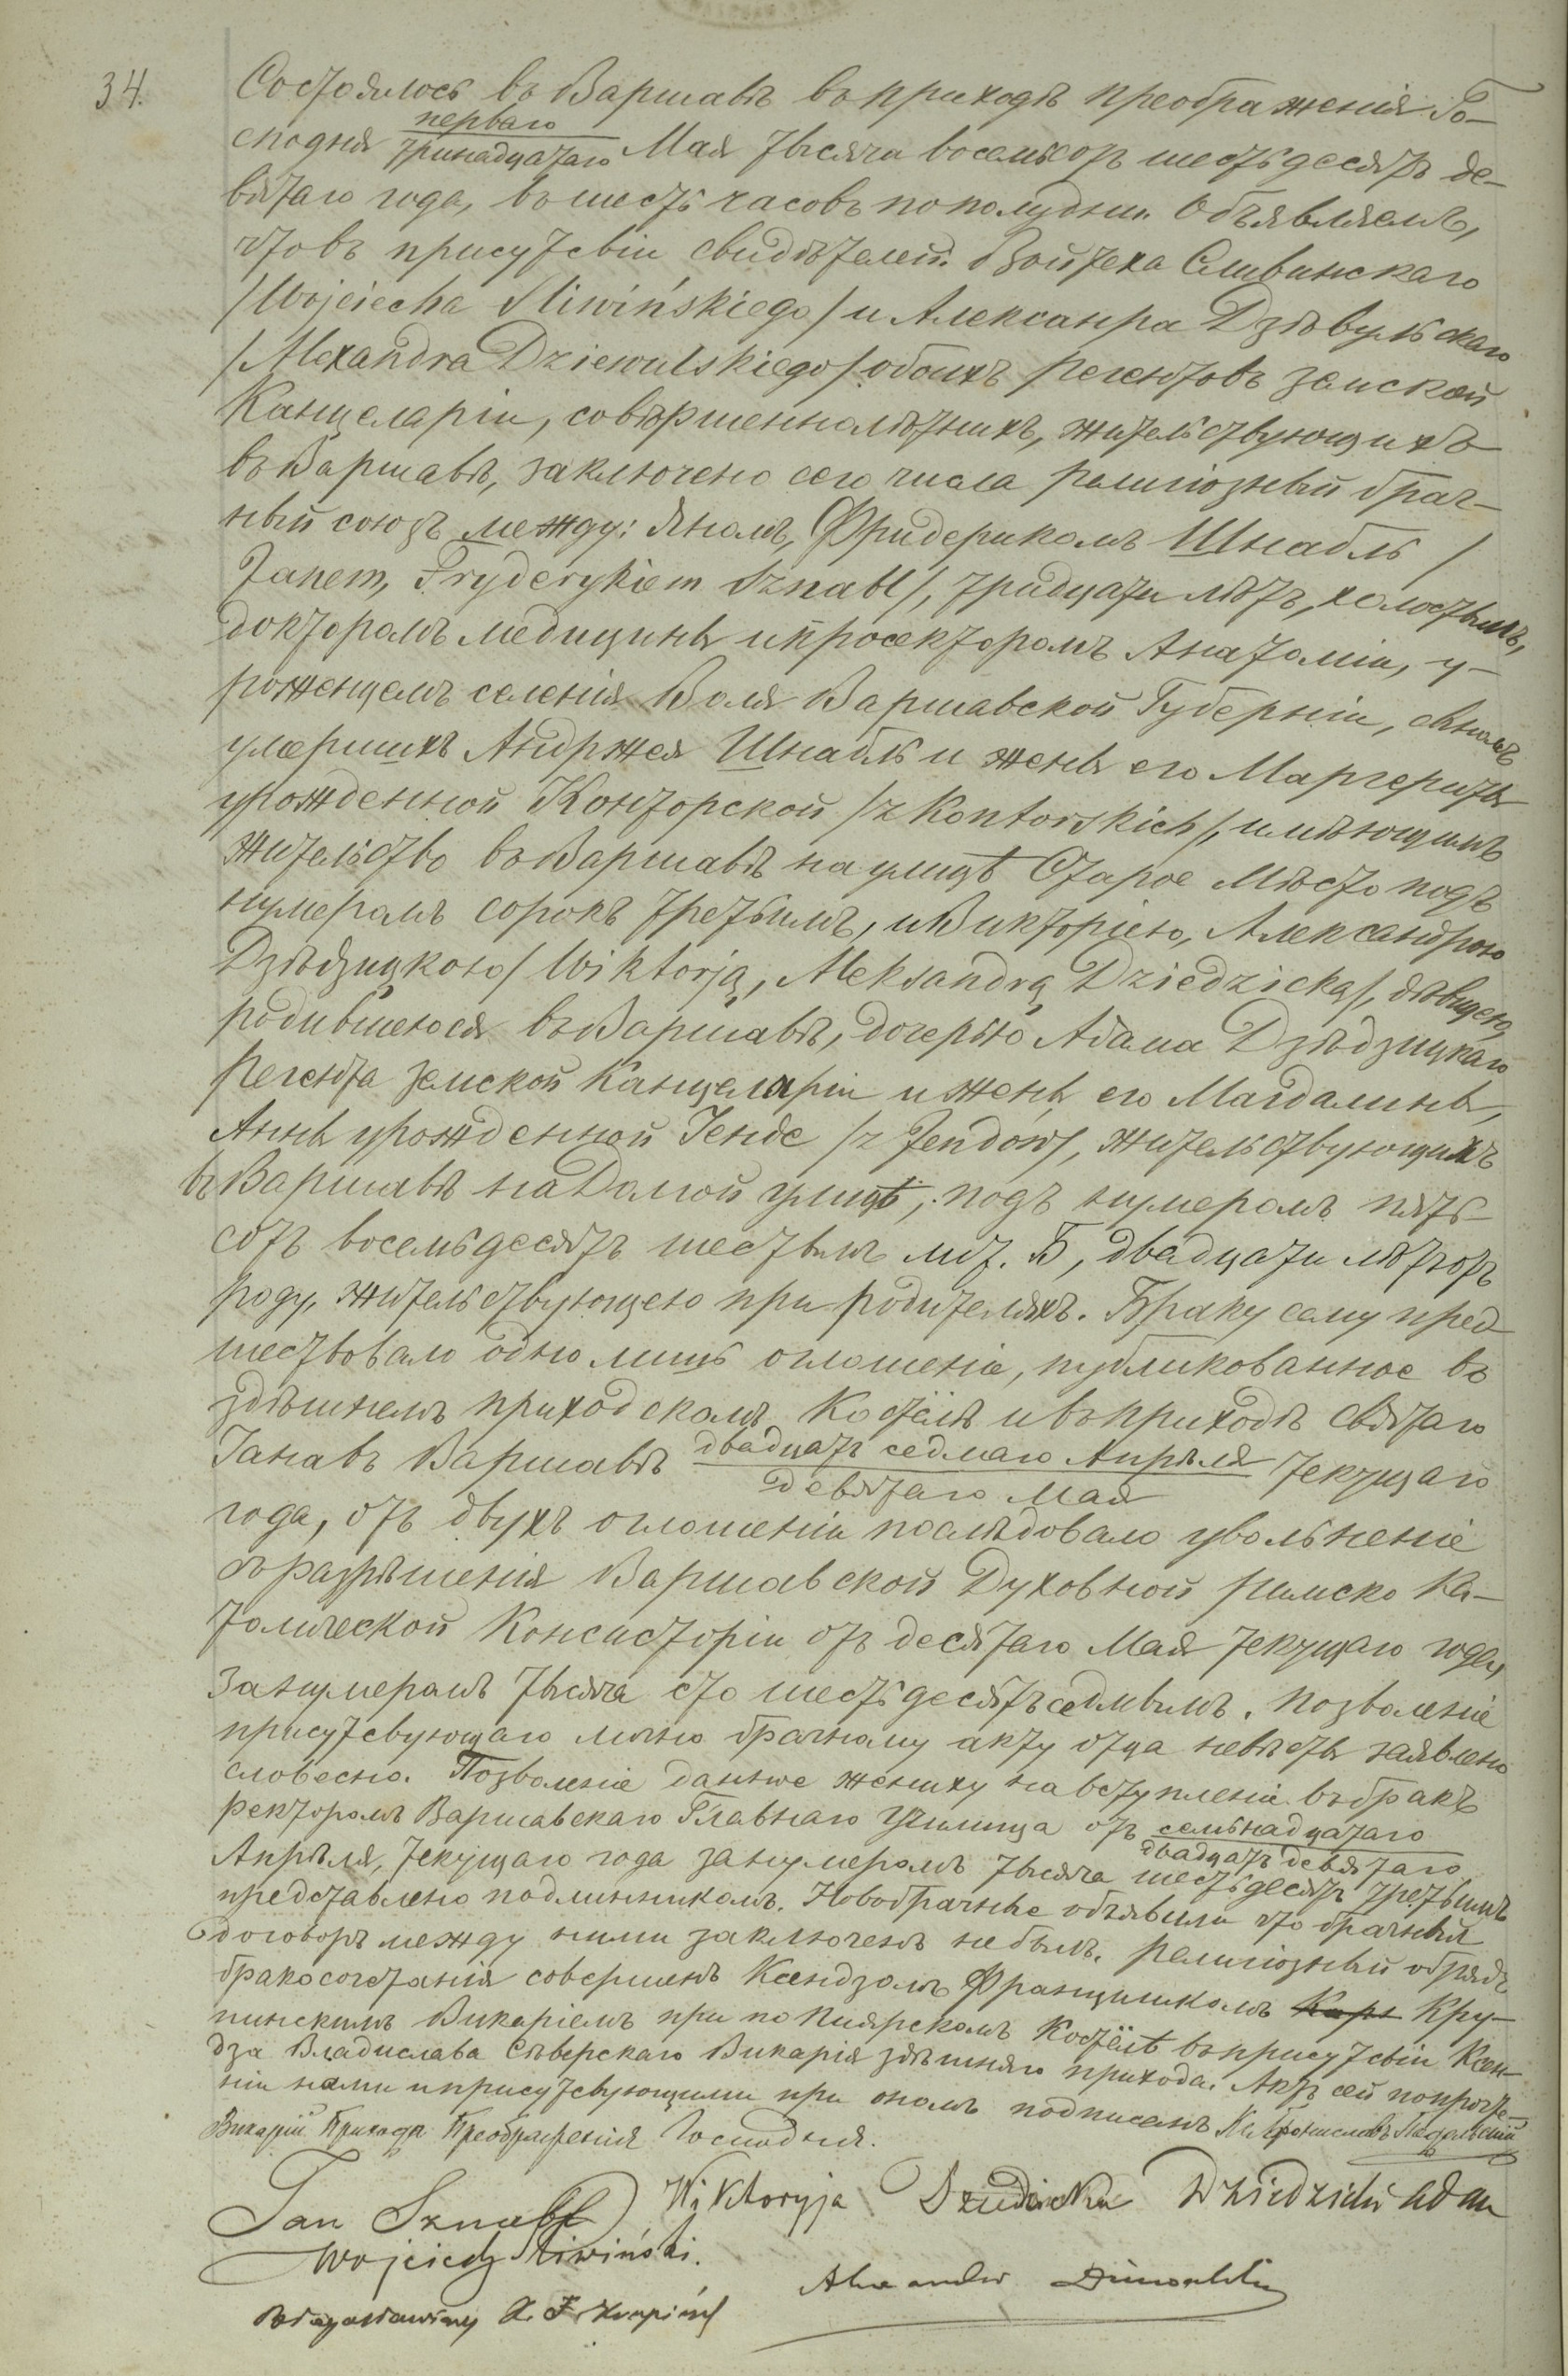 34.
Состоялось въ Варшавѣ въ приходѣ преображенія Го-
сподня первого/тринадцатаго Мая тысяча восемьсотъ шестьдесятъ де-
вятаго года, въ шесть часовъ пополудни. Объявляемъ,
что въ присутсвіи свидѣтелей. Войтеха Сливинскаго
/Wojciecha Sliwińskiego/ и Александра Дзѣвульскаго
/Alexandra Dziewulskiego/ обоихъ регентовъ земской
Канцеляріи, совѣршеннолѣтнихъ, жительствующихъ
въ Варшавѣ, заключено сего числа религіозный брач-
ный союзъ между: Яномъ, Фридерикомъ Шнабль /
Janem, Fryderykiem Sznabl/, тридцати лѣтъ, холостымъ,
докторомъ медицины и просекторомъ Анатоміи, у-
роженцемъ селенія Воля Варшавской Губерніи, сыномъ
умершихъ Андржея Шнабль и жены его Маргериты
урожденной Конторской /z Kontorskich/, имѣющимъ
жительство въ Варшавѣ на улицѣ Старое Мѣсто подъ
нумеромъ сорокъ третьимъ, и Викторіею, Александрою
Дзѣдзицкою /Wiktorją, Aleksandrą Dziedzicką/, дѣвицею,
родившеюся въ Варшавѣ, дочерью Адама Дзѣдзицкаго
регента земской Канцеляріи и жены его Магдалины,
Анны урожденной Іенде /z Jendów/, жительствующихъ
въ Варшавѣ на Долгой улицѣ, подъ нумеромъ пять-
сотъ восемьдесятъ шестымъ лит. Б, двадцати лѣтъ отъ
роду, жительствующею при родителяхъ. Браку сему пред
шествовало одно лишь оглошеніе, публикованное въ
здѣшнемъ приходскомъ Костёлѣ и въ приходѣ святаго
Іана въ Варшавѣ двадцать седмаго Апрѣля/девятаго Мая текущаго
года, отъ двухъ оглошеніи послѣдовало увольненіе
съ разрѣшенія Варшавской Духовной римско Ка-
толической Консисторіи отъ десятаго Мая текущаго года,
за нумеромъ тысяча сто шестьдесятъ седмымъ. Позволеніе
присутсвующаго лично брачному акту отца невѣсты заявлено
словесно. Позволеніе данное жениху на вступленіе въ бракъ
ректоромъ Варшавскаго Главнаго Училища отъ семьнадцатаго/двадцать девятаго
Апрѣля, текущаго года за нумеромъ тысяча шестьдесятъ третьимъ
представлено подлинникомъ. Новобрачные объявили что брачный
договоръ между ними заключенъ не былъ. Религіозный обрядъ
бракосочетанія совершенъ Ксендзомъ Францишкомъ Кру-
пинскимъ Викаріемъ при по Піярскомъ Костёлѣ въ присутсвіи Ксен-
дза Владислава Сѣверскаго Викарія здѣшняго прихода. Актъ сей по прочте-
ніи нами и присутсвующими при ономъ подписанъ Кс.
Викарій Прихода Преображенія Господня.
Jan Sznabl Wiktoryja Dziedzicka Dziedzicki Adam
Wojciech Sliwiński.
Alexander Dziewulski
Błogosławiony X. F. Krupiński